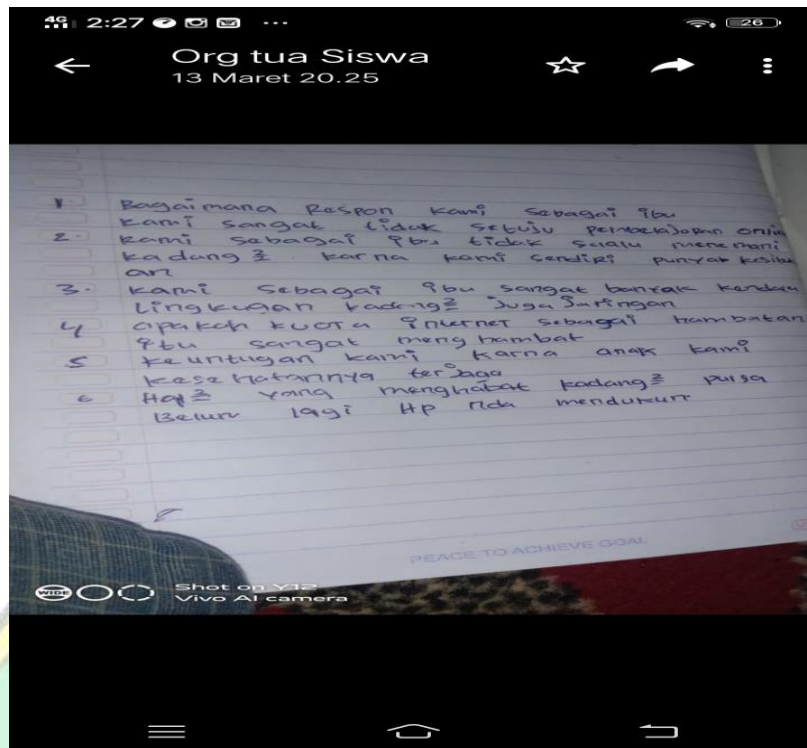 4G 2:27 ... 26
Org tua Siswa
13 Maret 20.25
1. Bagaimana Respon kami sebagai ibu
kami sangat tidak setuju pembelajaran onlin
2. kami sebagai ibu tidak selalu menemani
kadang2 karna kami sendiri punyak kesibu
an
3. kami sebagai ibu sangat banyak kendala
Lingkugan kadang2 juga Jaringan
4 apakah kuota internet sebagai hambatan
itu sangat menghambat
5 keuntugan kami karna anak kami
kesehatannya terjaga
6 Hal2 yang menghabat kadang2 pulsa
Belum lagi HP nda mendukun
PEACE TO ACHIEVE GOAL
WIDE Shot on Y12
Vivo AI camera